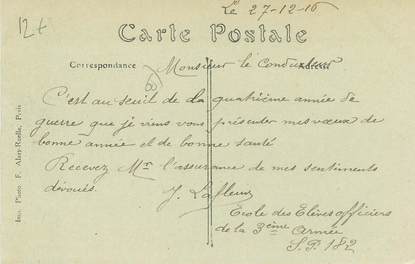 12f
Le 27-12-16
Carte Postale
Correspondance
Adresse
Monsieur le Conducteur
C'est au seuil de la quatrième année de
guerre que je viens vous présenter mes vœux de
bonne année et de bonne santé
Recevez Mr l'assurance de mes sentiments
dévoués.
J. Lafleur
Ecole des Elèves officiers
de la 3ème Armée
S.P. 182
Imp. Photo F. Paris